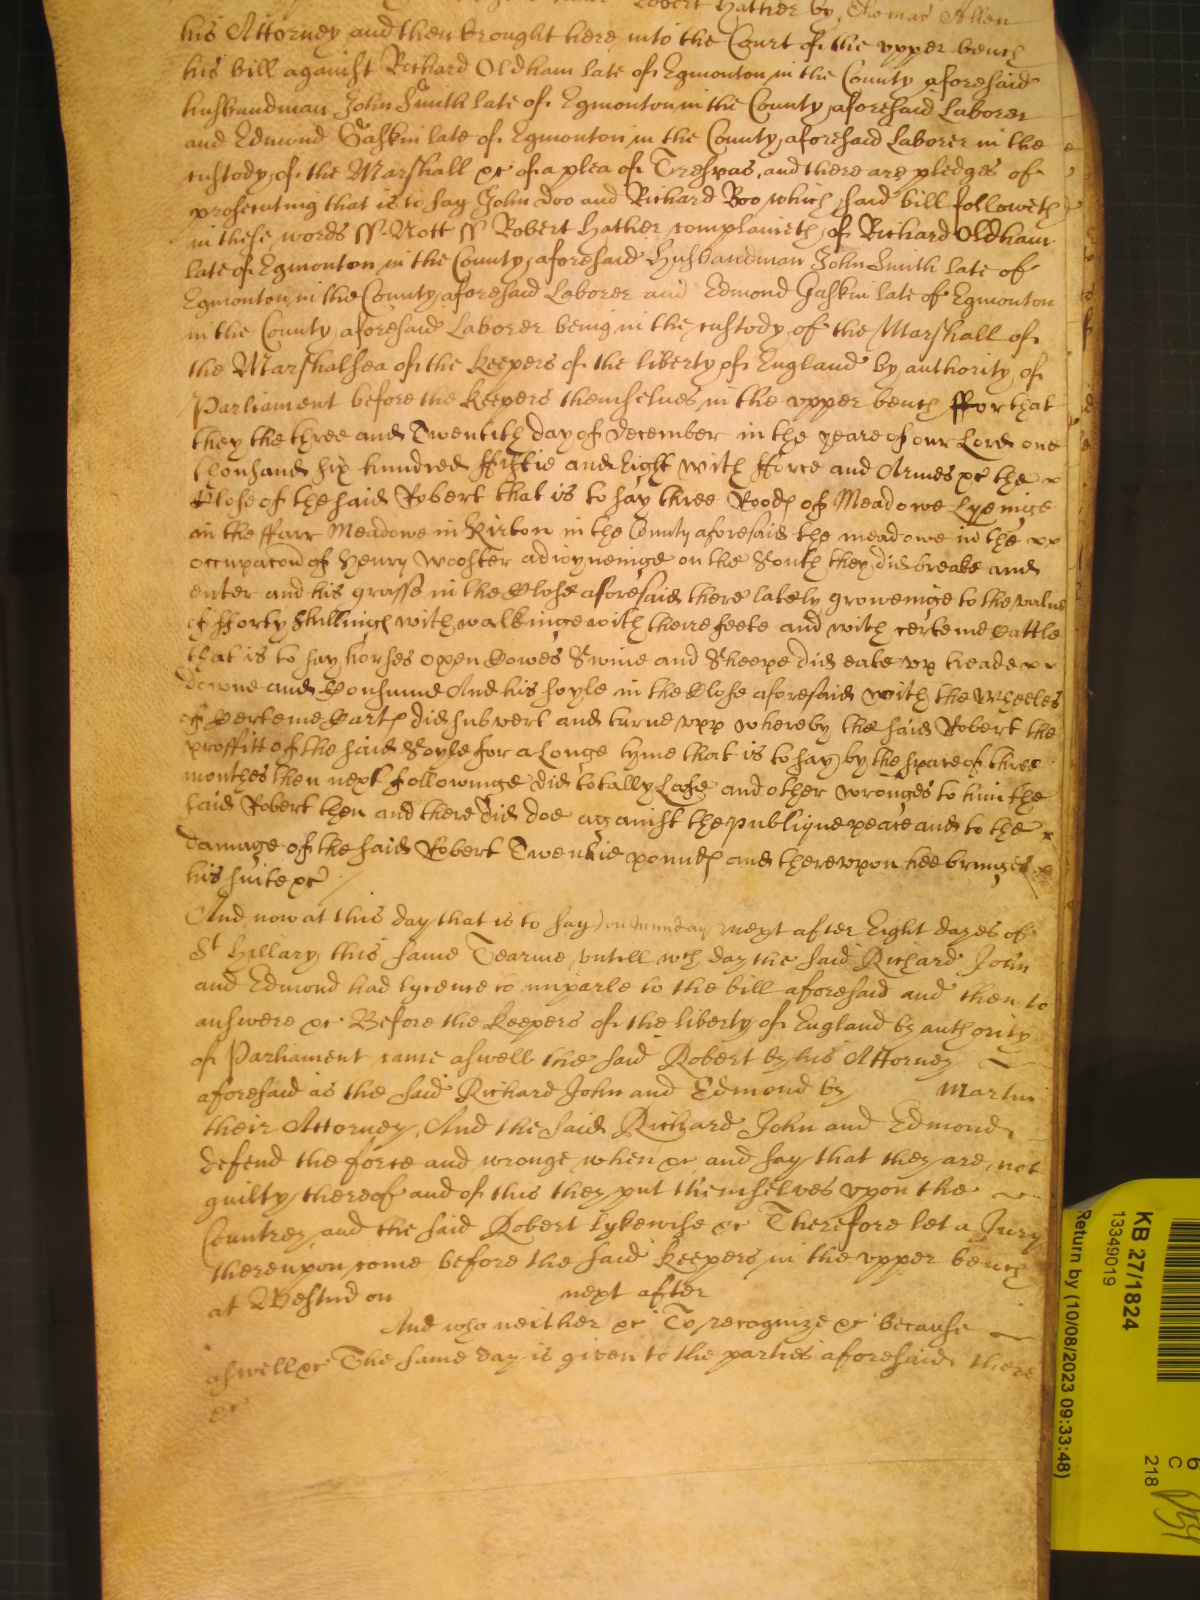 Robert Hather by Thomas Allen
his Attorney and then brought here into the Court of the vpper bench
his bill against Richard Oldham late of Egmonton in the County aforesaid
husbandman John Smith late of Egmonton in the County aforesaid Laborer
and Edmond Gaskin late of Egmonton in the County aforesaid Laborer in the
custody of the Marshall &c of a plea of Trespas, and there are pledges of
prosecuting that is to say John Doo and Richard Roo which said bill followeth
in these words ss. Nott ss Robert Hather complaineth of Richard Oldham
late of Egmonton in the County aforesaid Husbandman John Smith late of
Egmonton in the County aforesaid Laborer and Edmond Gaskin late of Egmonton
in the County aforesaid Laborer being in the custody of the Marshall of
the Marshalsea of the keepers of the liberty of England by authority of
Parliament before the keepers themselues in the vpper bench ffor that
they the three and Twentith day of December in the yeare of our Lord one
thousand six hundred ffiftie and Eight with fforce and Armes &c the
Close of the said Robert that is to say three Roods of Meadowe Lyeinge
in the ffarr Meadowe in Kirton in the County aforesaid the meadowe in the
occupacon of Henry Wooster adioyneinge on the South they did breake and
enter and his grasse in the Close aforesaid there lately groweinge to the value
of fforty Shillings with walkinge with theire feete and with certeine Cattle
that is to say horses oxen Cowes Swine and Sheepe did eate vp treade
downe and Consume And his soyle in the Close aforesaid with the wheeles
of Certeine Carts did subvert and turne vpp whereby the said Robert the
proffitt of the said Soyle for a Longe tyme that is to say by the space of three
monthes then next followinge did totally Lose and other wronges to him the
said Robert then and there did doe against the publique peace and to the
damage of the said Robert Twentie pounds and therevpon hee bringes
his suite &c
And now at this day that is to say) on Munday next after Eight dayes of
St Hillary this same Tearme vntill wch day the said Richard John
and Edmond had lycence to imparle to the bill aforesaid and then to
answere &c Before the keepers of the liberty of England by authority
of Parliament came aswell the said Robert by his Attorney
aforesaid as the said Richard John and Edmond by Martin
their Attorney, And the said Richard John and Edmond
defend the force and wronge when &c and say that they are not
guilty thereof and of this they put themselves vpon the
Countrey and the said Robert lykewise &c Therefore let a Jury
thereupon come before the said keepers in the vpper bench
at Westmr on next after
And who neither &c To recognize &c because
aswell &c The same day is given to the parties aforesaid there
&c
KB 27/1824
13349019
Return by (10/08/2023 09:33:48)
6
C
218